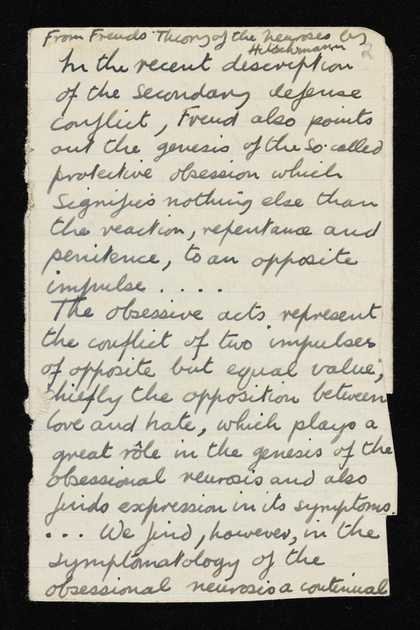 From Freud's Theory of the neuroses by
Hitschmann
2
In the recent description
of the secondary defense
conflict, Freud also points
out the genesis of the so-called
protective obsession which
signifies nothing else than
the reaction, repentance and
penitence, to an opposite
impulse . . . .
The obsessive acts represent
the conflict of two impulses
of opposite but equal value,
chiefly the opposition between
love and hate, which plays a
great rôle in the genesis of the
obsessional neurosis and also
finds expression in its symptoms.
. . . We find, however, in the
symptomatology of the
obsessional neurosis a continual